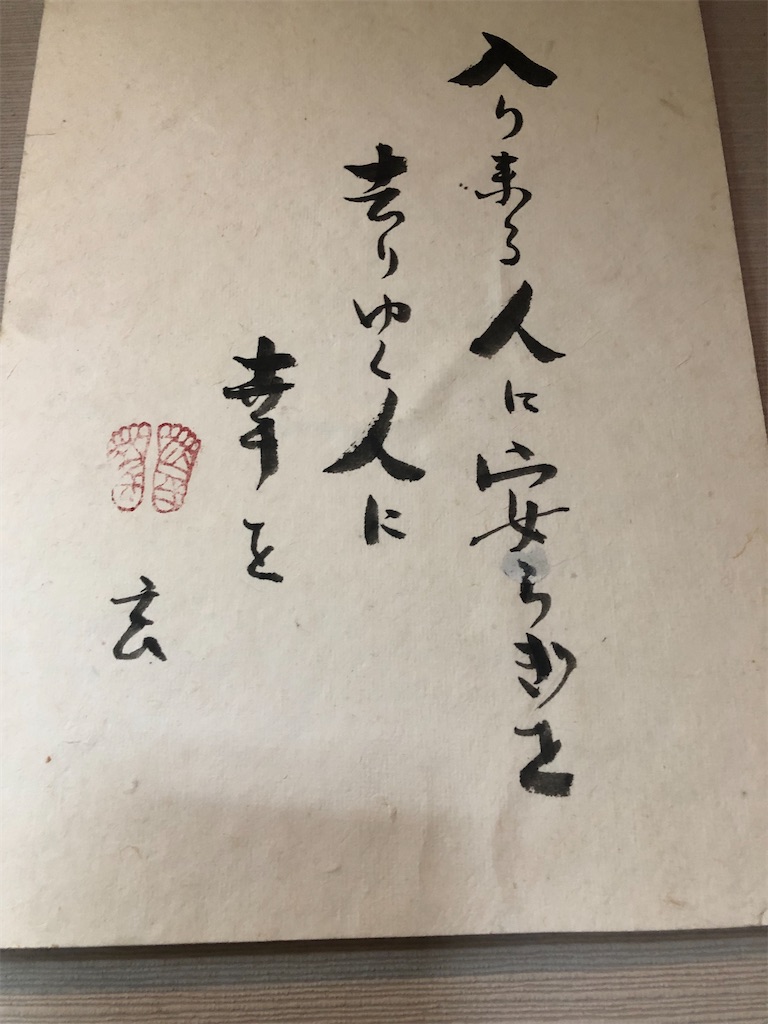 入り来る人に安らぎを
去りゆく人に
幸を
玄